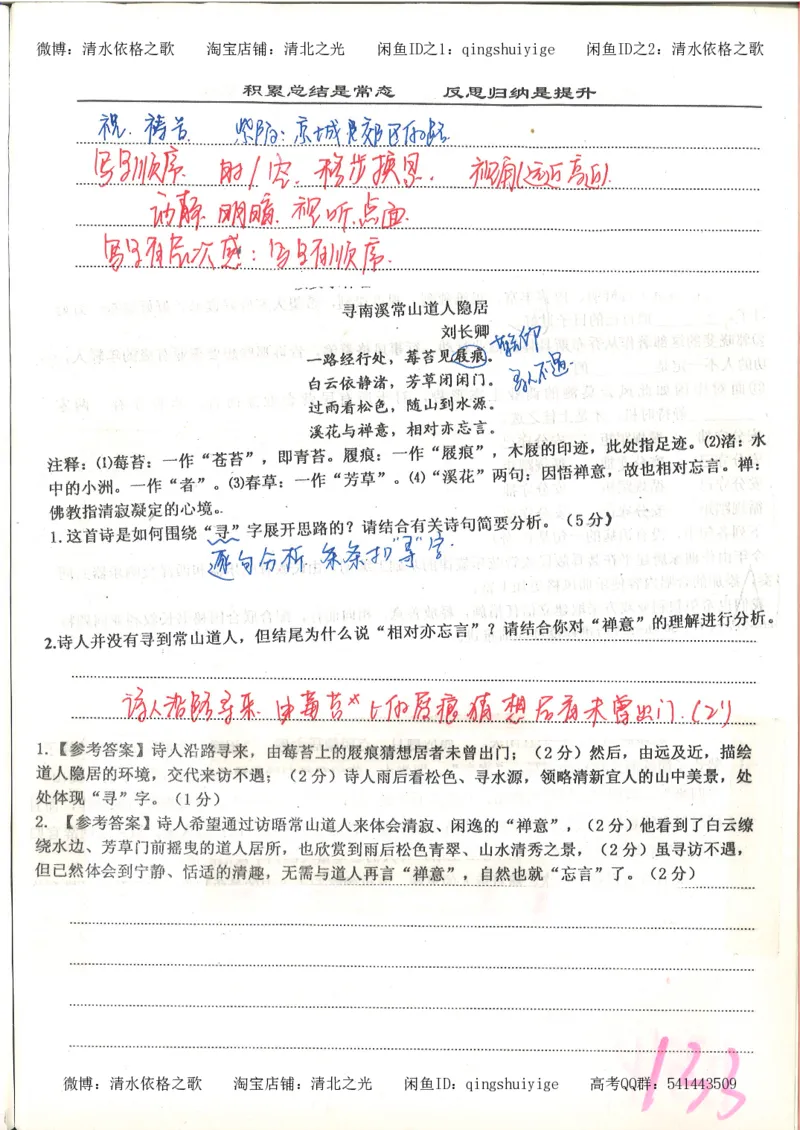 微博：清水依格之歌 淘宝店铺：清北之光 闲鱼ID之1：qingshuiyige 闲鱼ID之2：清水依格之歌
积累总结是常态 反思归纳是提升
祝、祷告 紫陌：京城郊区的路
写景顺序 时/空、移步换景、视角(远近高近)
动静、明暗、视听、点面
写景有层次感：写景有顺序
寻南溪常山道人隐居
刘长卿
一路经行处，莓苔见屐痕。
寻人不遇
白云依静渚，芳草闭闲门。
过雨看松色，随山到水源。
溪花与禅意，相对亦忘言。
注释：⑴莓苔：一作“苍苔”，即青苔。履痕：一作“屐痕”，木屐的印迹，此处指足迹。⑵渚：水
中的小洲。一作“者”。⑶春草：一作“芳草”。⑷“溪花”两句：因悟禅意，故也相对忘言。禅：
佛教指清寂凝定的心境。
1.这首诗是如何围绕“寻”字展开思路的？请结合有关诗句简要分析。（5分）
逐句分析，条条扣“寻”字.
2.诗人并没有寻到常山道人，但结尾为什么说“相对亦忘言”？请结合你对“禅意”的理解进行分析。
诗人沿路寻来，由莓苔上的屐痕猜想居者未曾出门.(2')
1. 【参考答案】诗人沿路寻来，由莓苔上的屐痕猜想居者未曾出门；（2分）然后，由远及近，描绘
道人隐居的环境，交代来访不遇；（2分）诗人雨后看松色、寻水源，领略清新宜人的山中美景，处
处体现“寻”字。（1分）
2. 【参考答案】诗人希望通过访晤常山道人来体会清寂、闲逸的“禅意”，（2分）他看到了白云缭
绕水边、芳草门前摇曳的道人居所，也欣赏到雨后松色青翠、山水清秀之景，（2分）虽寻访不遇，
但已然体会到宁静、恬适的清趣，无需与道人再言“禅意”，自然也就“忘言”了。（2分）
133
微博：清水依格之歌 淘宝店铺：清北之光 闲鱼ID：qingshuiyige 高考QQ群：541443509